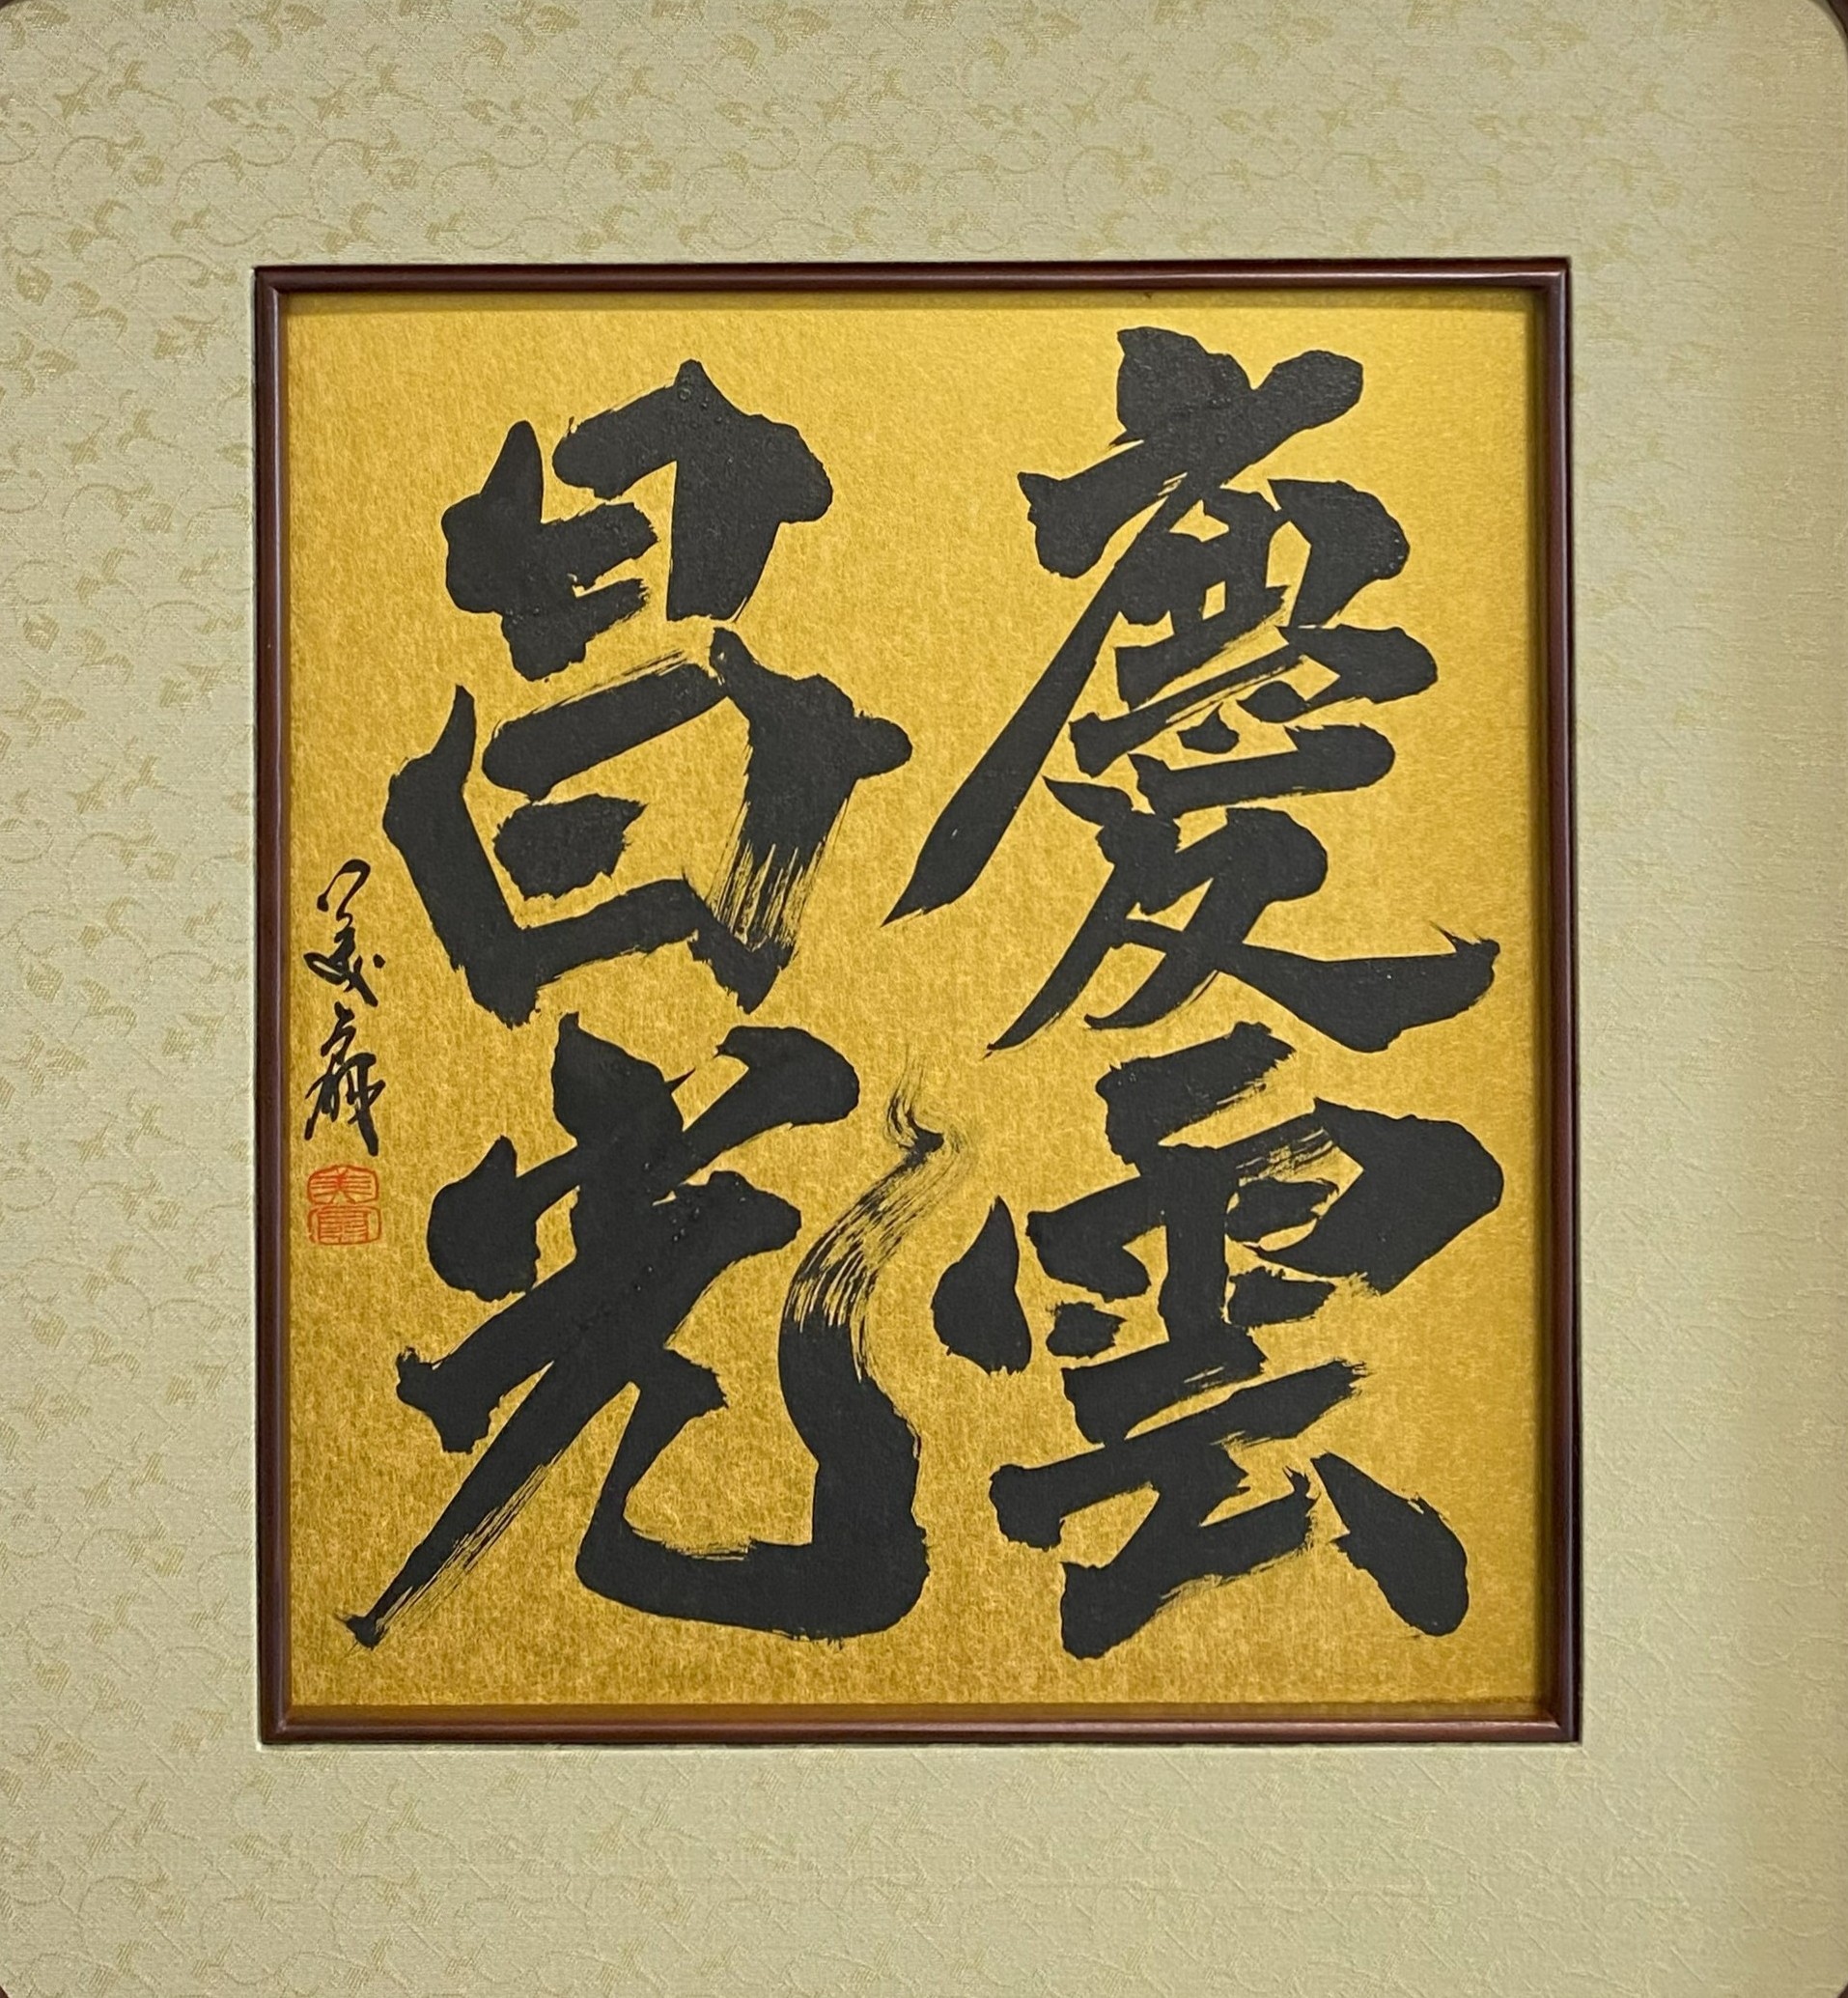 慶雲
昌光